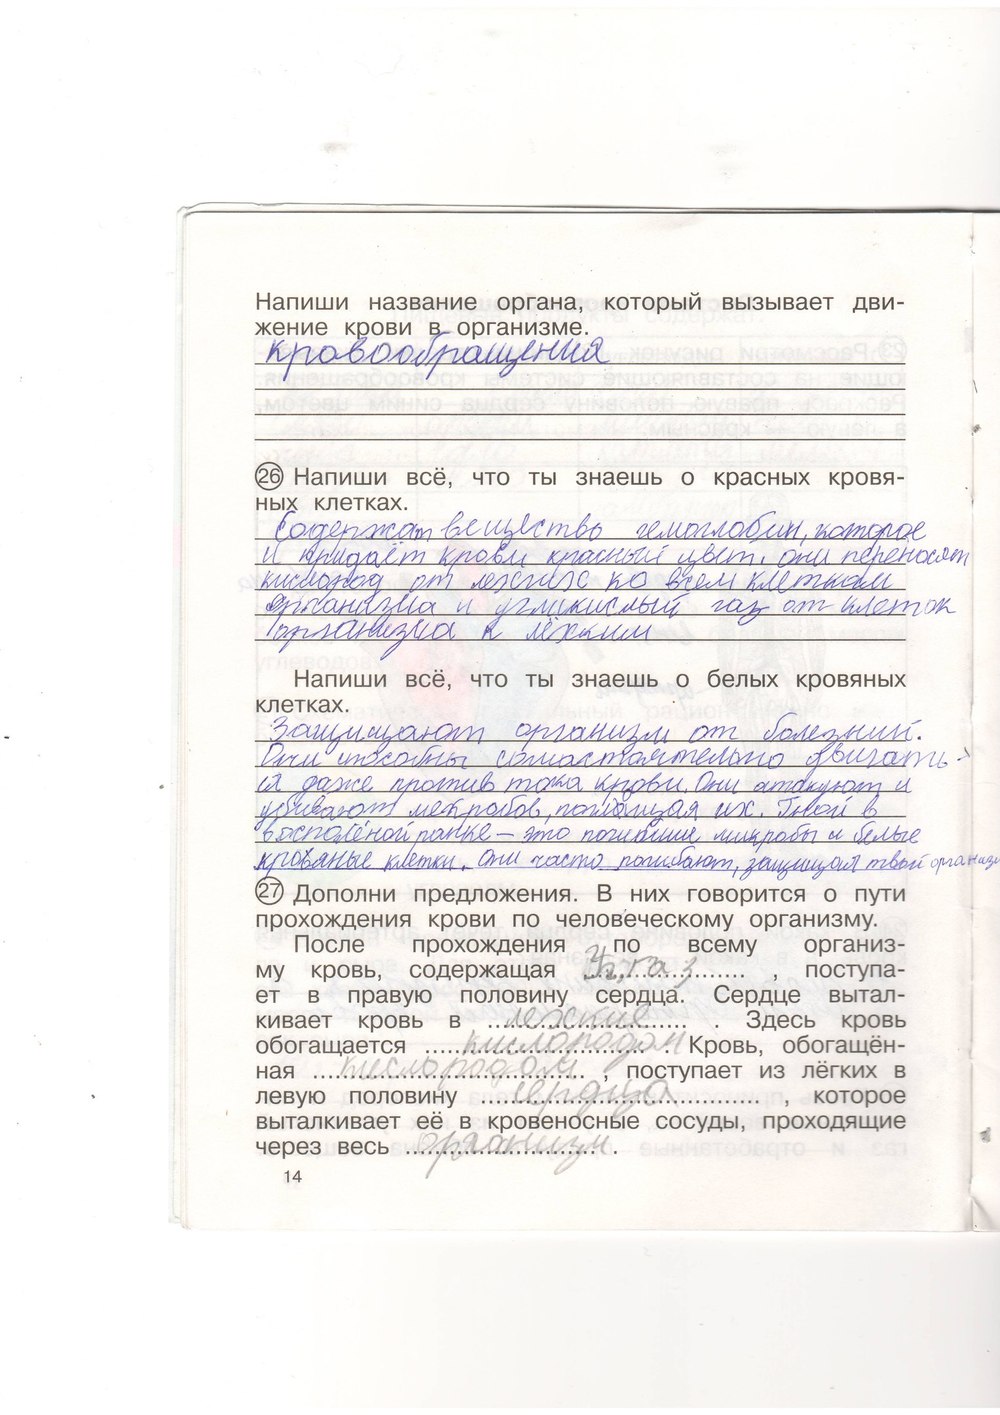 Напиши название органа, который вызывает дви-
жение крови в организме.
кровообращения
26 Напиши всё, что ты знаешь о красных кровя-
ных клетках.
Содержат вещество гемоглобин, которое
и придаёт крови красный цвет. они переносят
кислород от лёгких ко всем клеткам
организма и угликислый газ от клеток
организма к лёхким
Напиши всё, что ты знаешь о белых кровяных
клетках.
Защищают организм от болезний.
Они способны самостоятельно двигать-
ся даже против тока крови. Они атакуют и
убивают мекробов, поглощая их. Гной в
восполёной ранке – это погибшие микробы и белые
кровяные клетки. они часто погибают, защищая твой организм
27 Дополни предложения. В них говорится о пути
прохождения крови по человеческому организму.
После прохождения по всему организ-
му кровь, содержащая , поступа-
ет в правую половину сердца. Сердце вытал-
кивает кровь в лехкие . Здесь кровь
обогащается кислородом . Кровь, обогащён-
ная кислородом , поступает из лёгких в
левую половину сердца , которое
выталкивает её в кровеносные сосуды, проходящие
через весь организм .
14